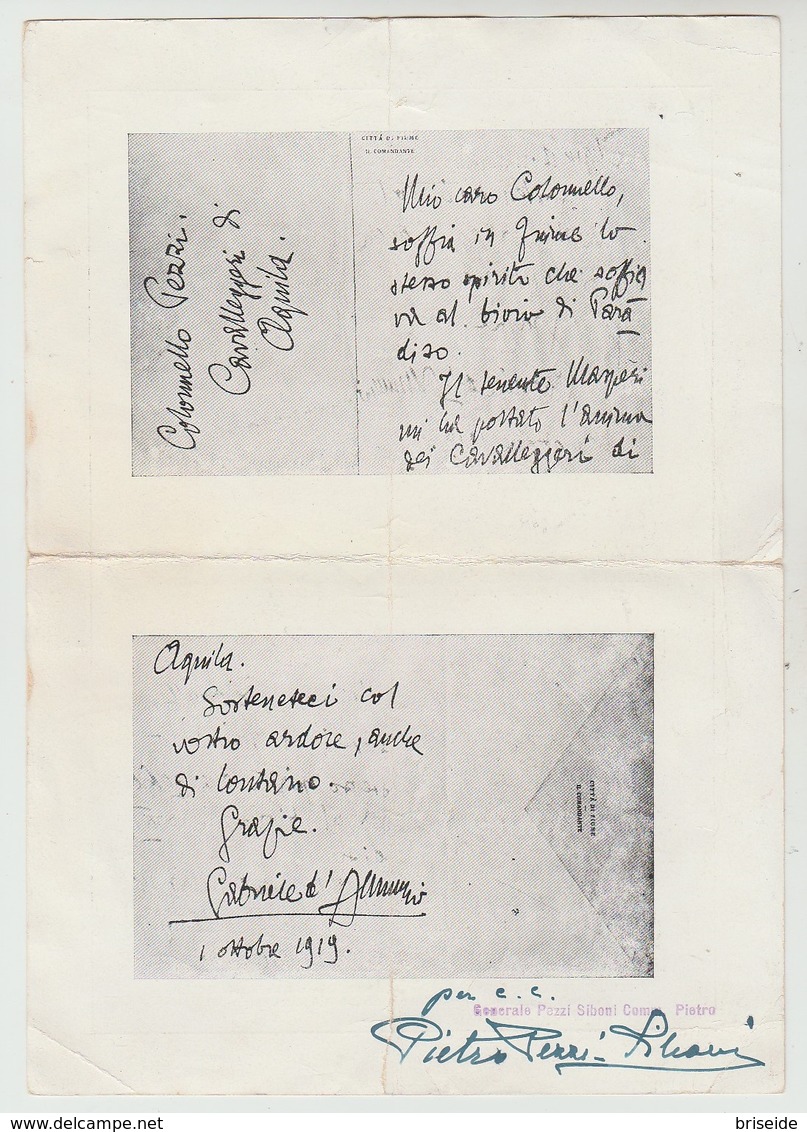 Colonnello Pezzi.
Cavalleggeri di
Aquila.
CITTÀ DI FIUME
IL COMANDANTE
Mio caro Colonnello,
soffia in Fiume lo
stesso spirito che soffia
va al bivio di Para
diso.
Il tenente Masperi
mi ha portato l'anima
dei Cavalleggeri di
Aquila.
Sosteneteci col
vostro ardore, anche
di lontano.
Grazie.
Gabriele d'Annunzio
1 ottobre 1919.
CITTÀ DI FIUME
IL COMANDANTE
per c. c.
Generale Pezzi Siboni Comm. Pietro
Pietro Pezzi-Siboni
briseide